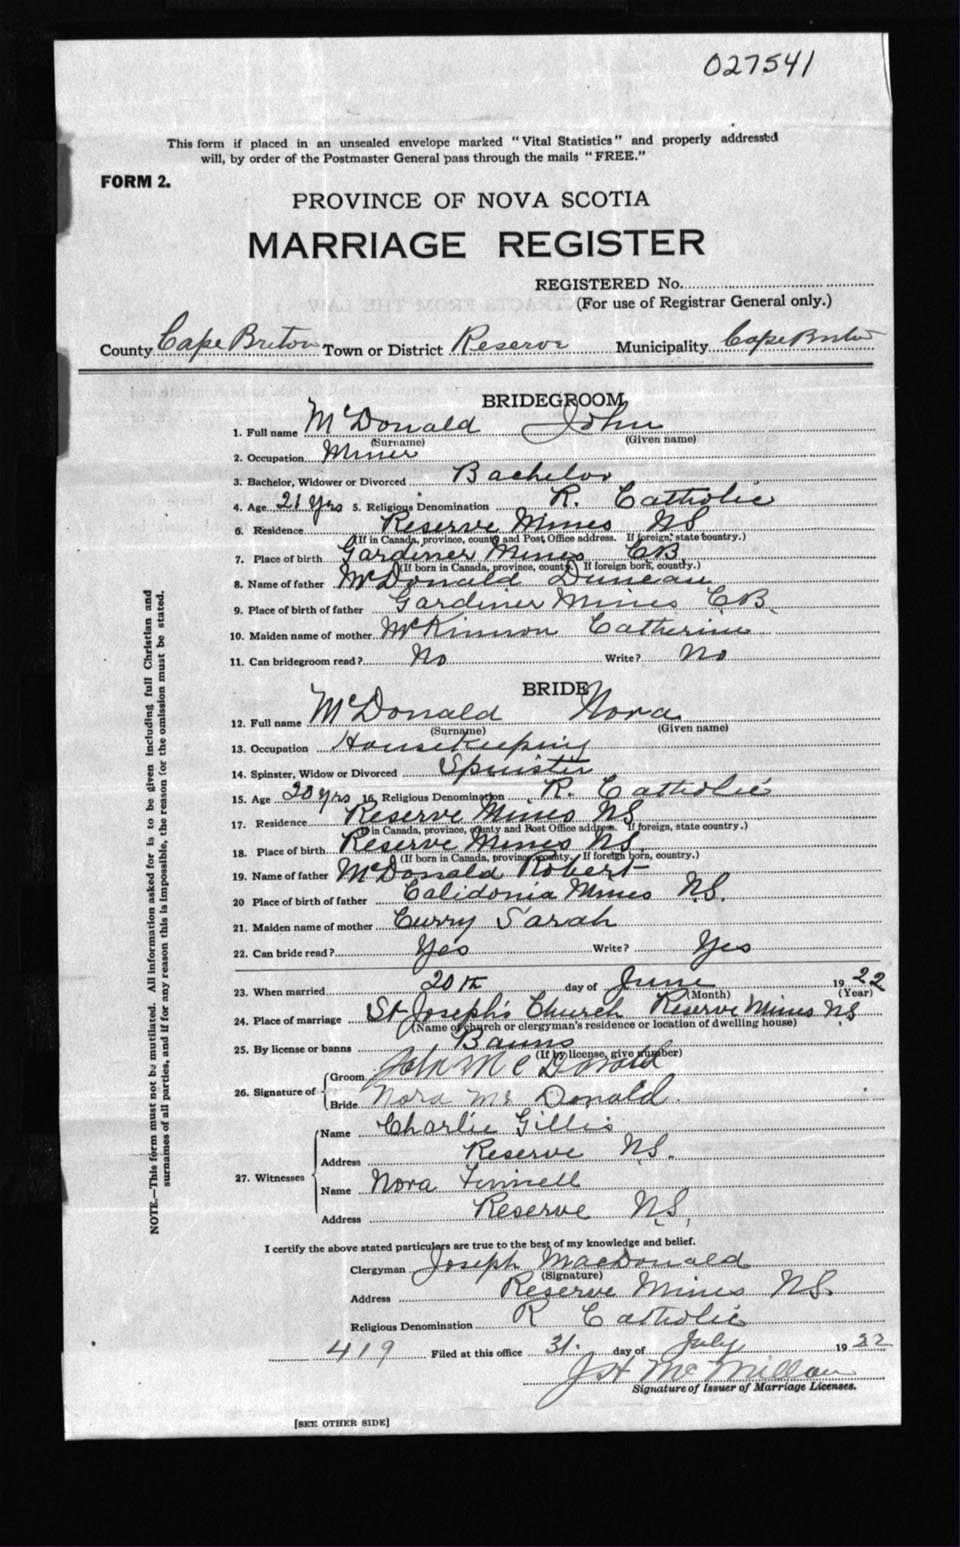 027541
This form if placed in an unsealed envelope marked "Vital Statistics" and properly addressed
will, by order of the Postmaster General pass through the mails "FREE."
FORM 2.
PROVINCE OF NOVA SCOTIA
MARRIAGE REGISTER
REGISTERED No.
(For use of Registrar General only.)
County Cape Breton Town or District Reserve Municipality Cape Breton
BRIDEGROOM
1. Full name McDonald John
(Surname) (Given name)
2. Occupation Miner
3. Bachelor, Widower or Divorced Bachelor
4. Age 21 yrs 5. Religious Denomination R. Catholic
6. Residence Reserve Mines NS
(If in Canada, province, county and Post Office address. If foreign, state country.)
7. Place of birth Gardiner Mines CB
(If born in Canada, province, county. If foreign born, country.)
8. Name of father McDonald Duncan
9. Place of birth of father Gardiner Mines C.B.
10. Maiden name of mother McKinnon Catherine
11. Can bridegroom read? No Write? No
BRIDE
12. Full name McDonald Nora
(Surname) (Given name)
13. Occupation Housekeeping
14. Spinster, Widow or Divorced Spinster
15. Age 20 yrs 16. Religious Denomination R. Catholic
17. Residence Reserve Mines NS
(If in Canada, province, county and Post Office address. If foreign, state country.)
18. Place of birth Reserve Mines NS
(If born in Canada, province, county. If foreign born, country.)
19. Name of father McDonald Robert
20 Place of birth of father Calidonia Mines N.S.
21. Maiden name of mother Curry Sarah
22. Can bride read? Yes Write? Yes
23. When married 20th day of June 1922
(Month) (Year)
24. Place of marriage St Joseph's Church Reserve Mines NS
(Name of church or clergyman's residence or location of dwelling house)
25. By license or banns Banns
(If by license, give number)
26. Signature of
Groom John McDonald
Bride Nora Mc Donald.
27. Witnesses
Name Charlie Gillis
Address Reserve N.S.
Name Nora
Address Reserve N.S.
I certify the above stated particulars are true to the best of my knowledge and belief.
Clergyman Joseph MacDonald
(Signature)
Address Reserve Mines N.S.
Religious Denomination R Catholic
419 Filed at this office 31. day of July 1922
J H McMillan
Signature of Issuer of Marriage Licenses.
[SEE OTHER SIDE]
NOTE.—This form must not be mutilated. All information asked for is to be given including full Christian and
surnames of all parties, and if for any reason this is impossible, the reason for the omission must be stated.